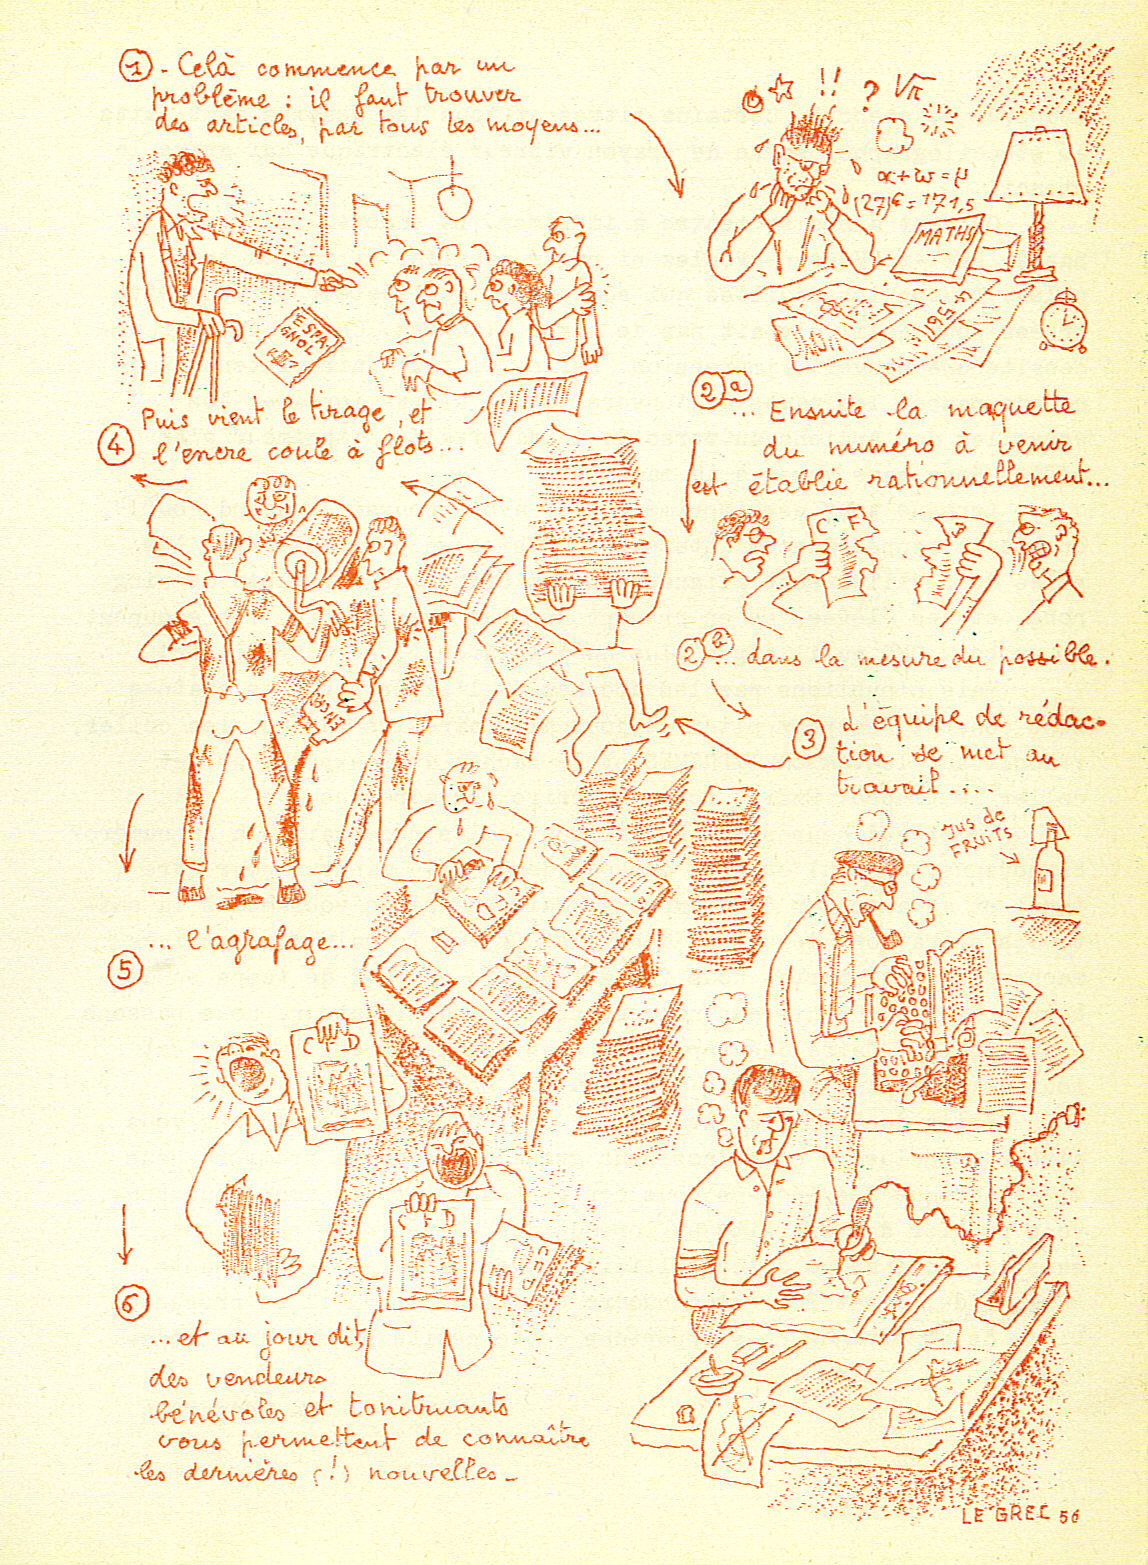 1 - Celà commence par un
problème : il faut trouver
des articles, par tous les moyens...
!! ? √π
x + w = μ
(27)€ = 171,5
MATHS
1956
ESPA
GNOL
2a
... Ensuite la maquette
du numéro à venir
est établie rationnellement...
C F
2b ... dans la mesure du possible.
3 L'équipe de rédac-
tion se met au
travail....
jus de
FRUITS
4 Puis vient le tirage, et
l'encre coule à flots...
ENCRE
5 ... l'agrafage...
CFD
CFD
CFD
6
... et au jour dit,
des vendeurs
bénévoles et tonitruants
vous permettent de connaître
les dernières (!) nouvelles -
LE GREC 56